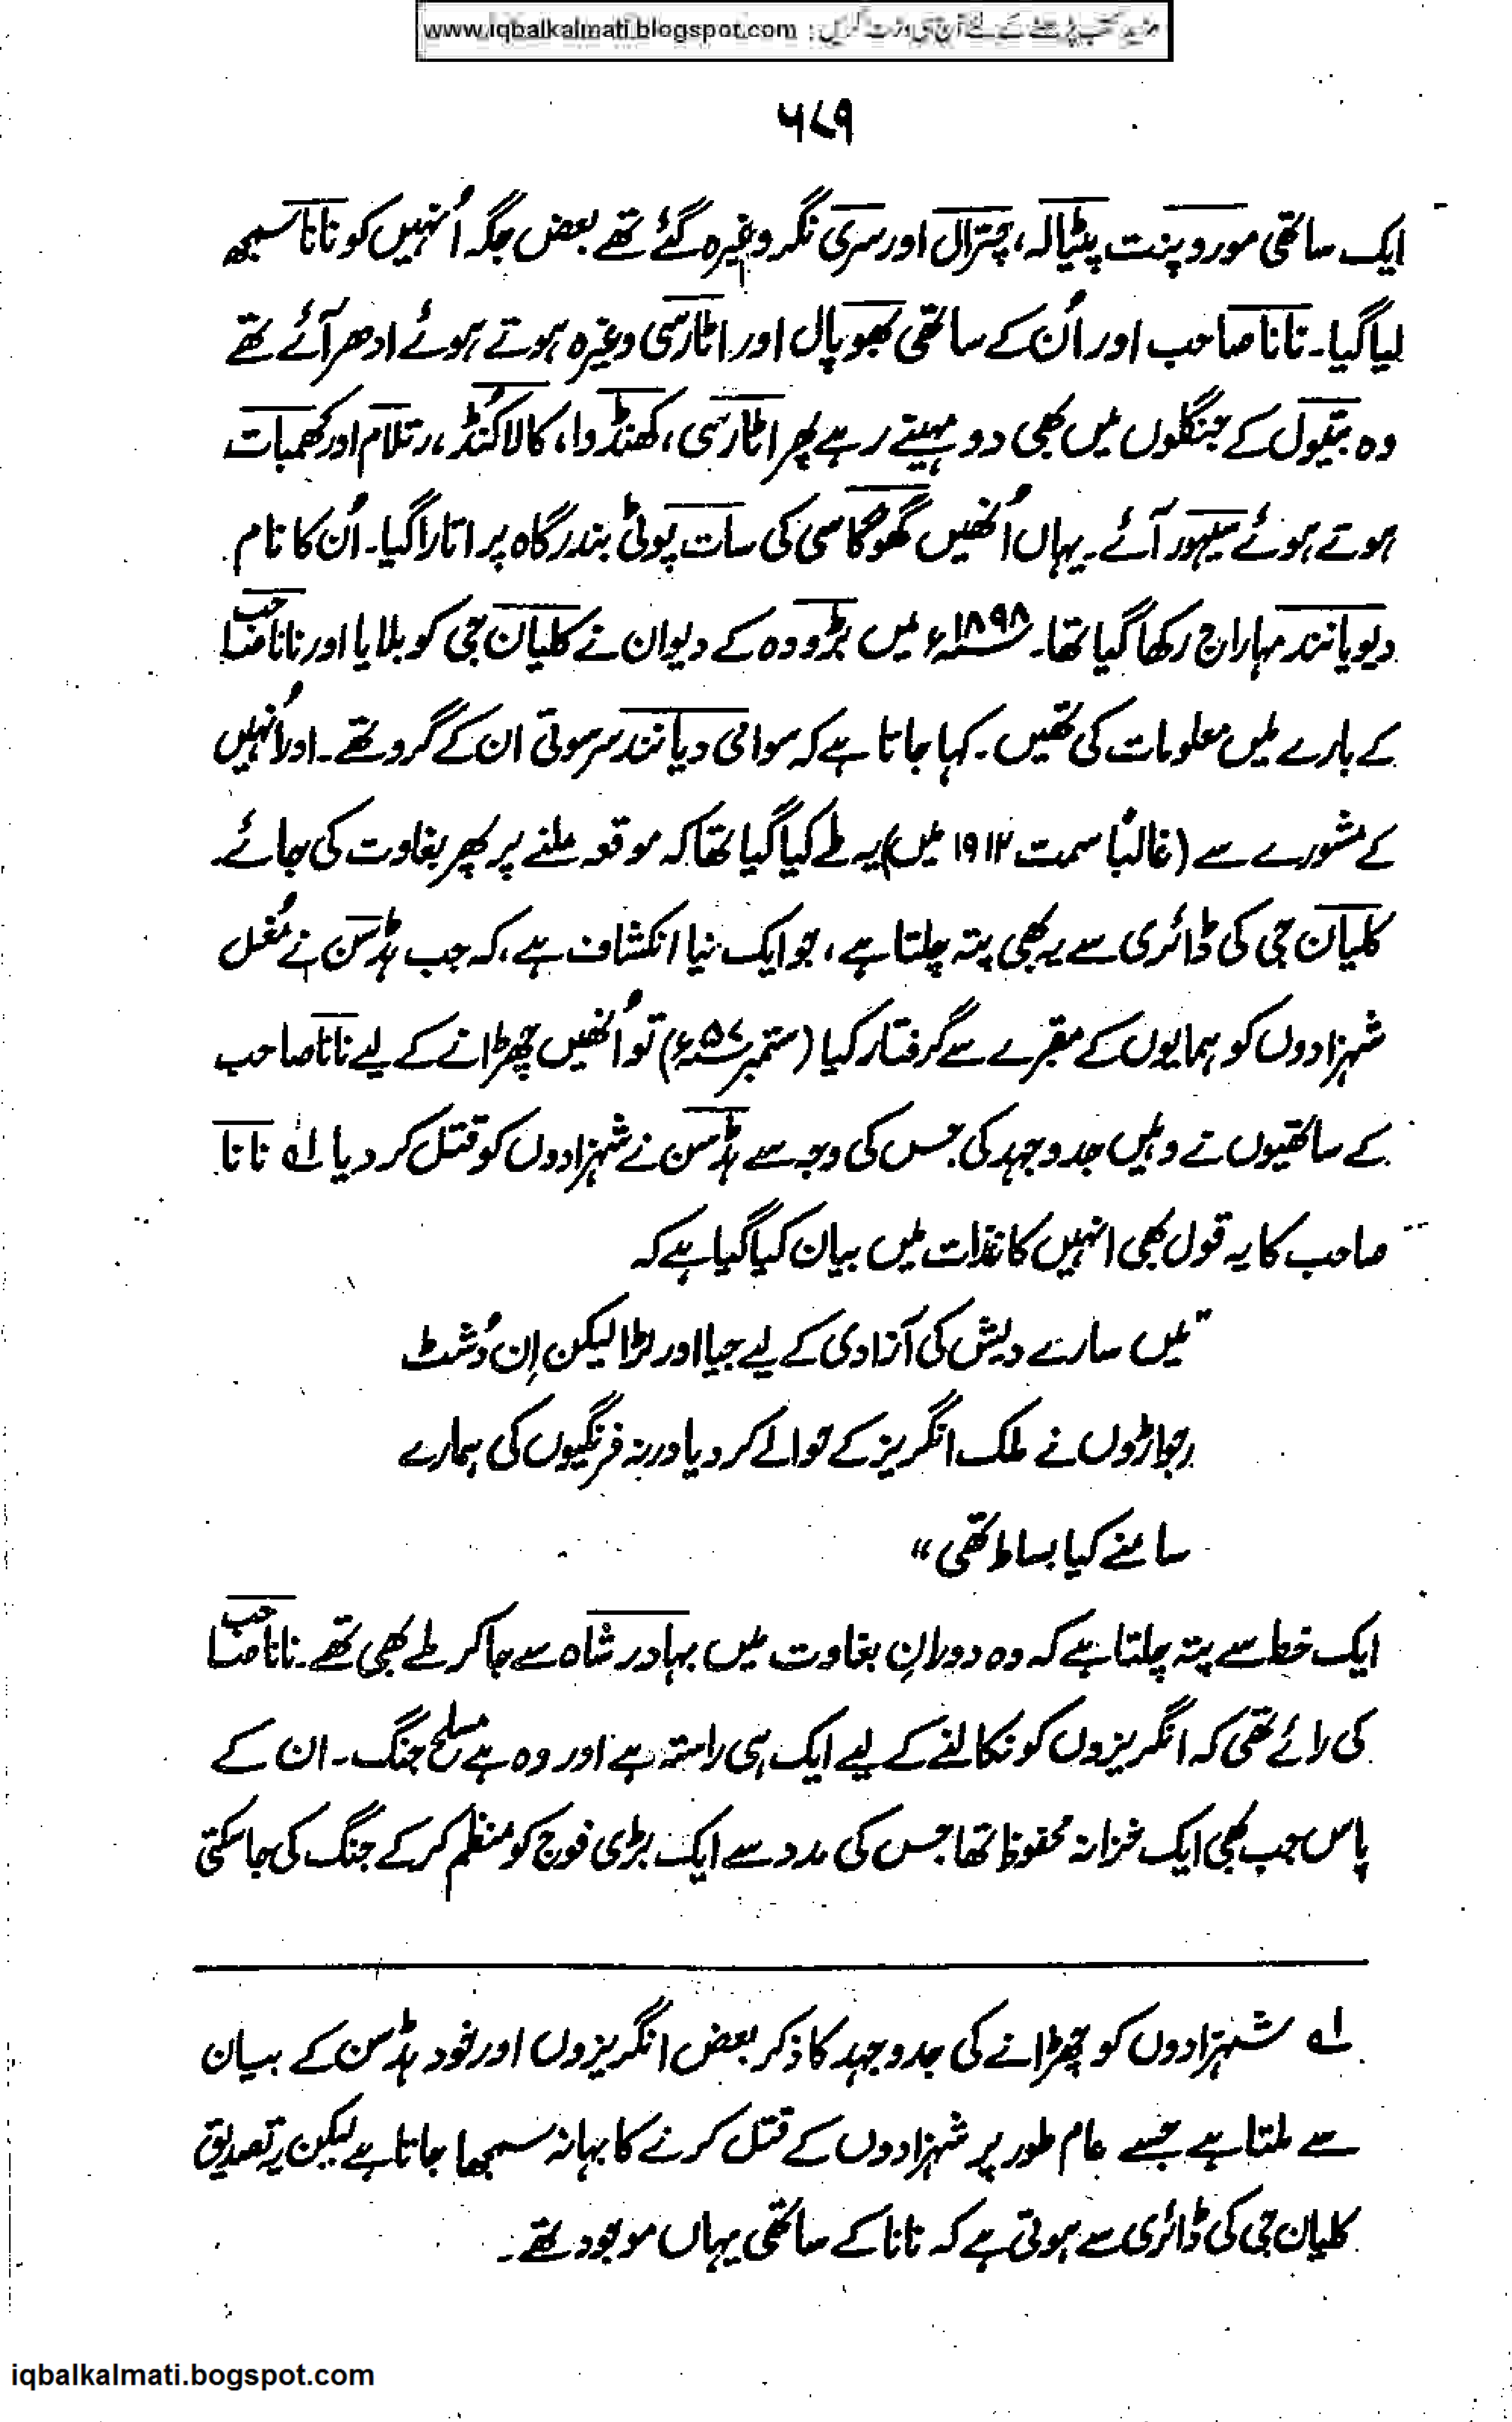 مزید کتب پڑھنے کے لئے آج ہی وزٹ کریں : www.iqbalkalmati.blogspot.com
۵۷۹
ایک ساتھی مورو پنت پٹیالہ، چترال اور سری نگر وغیرہ گئے تھے بعض جگہ اُنہیں کو نانا سمجھ
لیا گیا۔ نانا صاحب اور اُن کے ساتھی بھوپال اور اٹارسی وغیرہ ہوتے ہوئے ادھر آئے تھے
وہ بیتول کے جنگلوں میں بھی دو مہینے رہے پھر اٹارسی، کھنڈوا، کالاکُنڈ، رتلام اور کھمبات
ہوتے ہوئے سیہور آئے۔ یہاں اُنھیں گھوگاسی کی سات پوٹی بندرگاہ پر اتارا گیا۔ اُن کا نام
دیویانند مہاراج رکھا گیا تھا۔ ۱۸۹۸ء میں بڑودہ کے دیوان نے کلیان جی کو بلایا اور نانا صاحب
کے بارے میں معلومات کی تھیں۔ کہا جاتا ہے کہ سوامی دیانند سرسوتی ان کے گرو تھے۔ اور اُنہیں
کے مشورے سے (غالبًا سمت ۱۹۱۲ میں) یہ طے کیا گیا تھا کہ موقعہ ملنے پر پھر بغاوت کی جائے۔
کلیان جی کی ڈائری سے یہ بھی پتہ چلتا ہے، جو ایک نیا انکشاف ہے، کہ جب ہڈسن نے مُغل
شہزادوں کو ہمایوں کے مقبرے سے گرفتار کیا (ستمبر ۵۷ء) تو اُنھیں چھڑانے کے لیے نانا صاحب
کے ساتھیوں نے وہیں جدوجہد کی جس کی وجہ سے ہڈسن نے شہزادوں کو قتل کر دیا ۱؎ نانا
صاحب کا یہ قول بھی انہیں کاغذات میں بیان کیا گیا ہے کہ
"میں سارے دیش کی آزادی کے لیے جیا اور لڑا لیکن اِن دُشٹ
رجواڑوں نے ملک انگریز کے حوالے کر دیا ورنہ فرنگیوں کی ہمارے
سامنے کیا بساط تھی"
ایک خط سے پتہ چلتا ہے کہ وہ دورانِ بغاوت میں بہادر شاہ سے جا کر ملے بھی تھے۔ نانا صاحب
کی رائے تھی کہ انگریزوں کو نکالنے کے لیے ایک ہی راستہ ہے اور وہ ہے مسلح جنگ۔ ان کے
پاس جب بھی ایک خزانہ محفوظ تھا جس کی مدد سے ایک بڑی فوج کو منظم کر کے جنگ کی جا سکتی
۱؎ شہزادوں کو چھڑانے کی جدوجہد کا ذکر بعض انگریزوں اور خود ہڈسن کے بیان
سے ملتا ہے جسے عام طور پر شہزادوں کے قتل کرنے کا بہانہ سمجھا جاتا ہے لیکن یہ تصدیق
کلیان جی کی ڈائری سے ہوتی ہے کہ نانا کے ساتھی یہاں موجود تھے۔
iqbalkalmati.bogspot.com